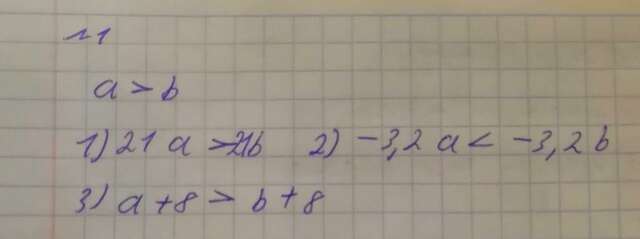 №1
a > b
1) 21 a > 21b 2) -3,2 a < -3,2 b
3) a + 8 > b + 8